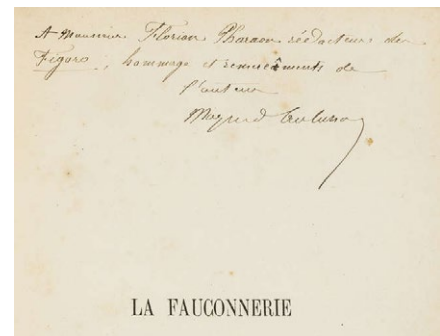 A Monsieur Florian Pharaon rédacteur du
Figaro, hommage et remerciements de
l'auteur
LA FAUCONNERIE